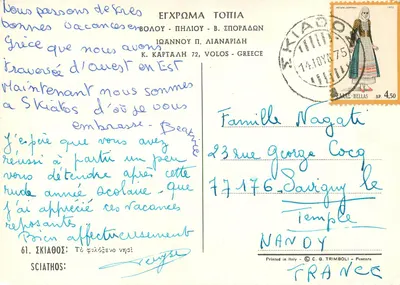 Nous passons de très
bonnes vacances en
Grèce que nous avons
traversée d'ouest en Est
Maintenant nous sommes
a Skiatos d'où je vous
embrasse. Beatrice
J'espère que vous avez
réussi à partir un peu
vous détendre après cette
rude année scolaire. que
j'ai apprécié ces vacances
reposantes
Bien affectueusement
ΕΓΧΡΩΜΑ ΤΟΠΙΑ
ΒΟΛΟΥ - ΠΗΛΙΟΥ - Β. ΣΠΟΡΑΔΩΝ
ΙΩΑΝΝΟΥ Π. ΛΙΑΝΑΡΙΔΗ
Κ. ΚΑΡΤΑΛΗ 72, VOLOS - GREECE
61. ΣΚΙΑΘΟΣ: Τὸ φιλόξενο νησί
SCIATHOS:
Printed in Italy - © C. G. TRIMBOLI - Pescara
ΣΚΙΑΘΟΣ
75
HELLAS
ΔΡ 4,50
Famille Nagati
23 rue George Cocq
77176. Savigny le
Temple
NANDY
FRANCE